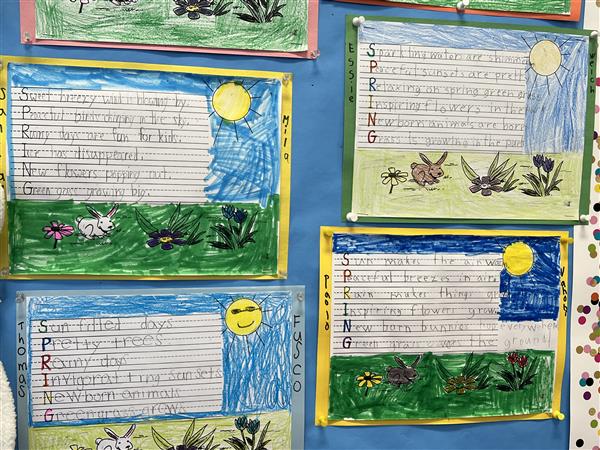 Mila
Sweet breezy wind blowing by.
Peaceful birds chirping in the sky.
Rainy days are fun for kids.
Ice has disappeared.
New flowers popping out.
Green grass growing big.
Essie
Sparkling water are shimm
Peaceful sunsets are pret
Relaxing on spring green grass
Inspiring flowers in the
New born animals are born
Grass is growing in the
Thomas
Fusco
Sun filled days
Pretty trees
Rainy days
Invigorating sunsets
Newborn animals
Green grass grow
Paolo
Sun makes the air wa
Peaceful breezes in air
Rain makes things
Inspiring flowers grow
New born bunnies hop everywhere
Green grass was the ground